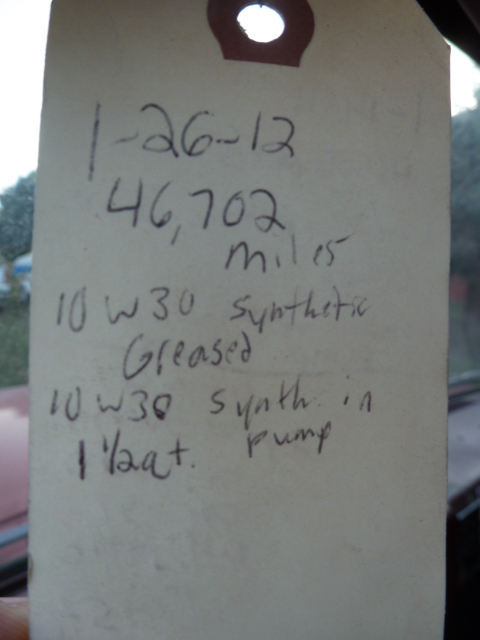 1-26-12
46,702
miles
10 W 30 synthetic
Greased
10 W 30 synth. in
1 1/2 qt. pump